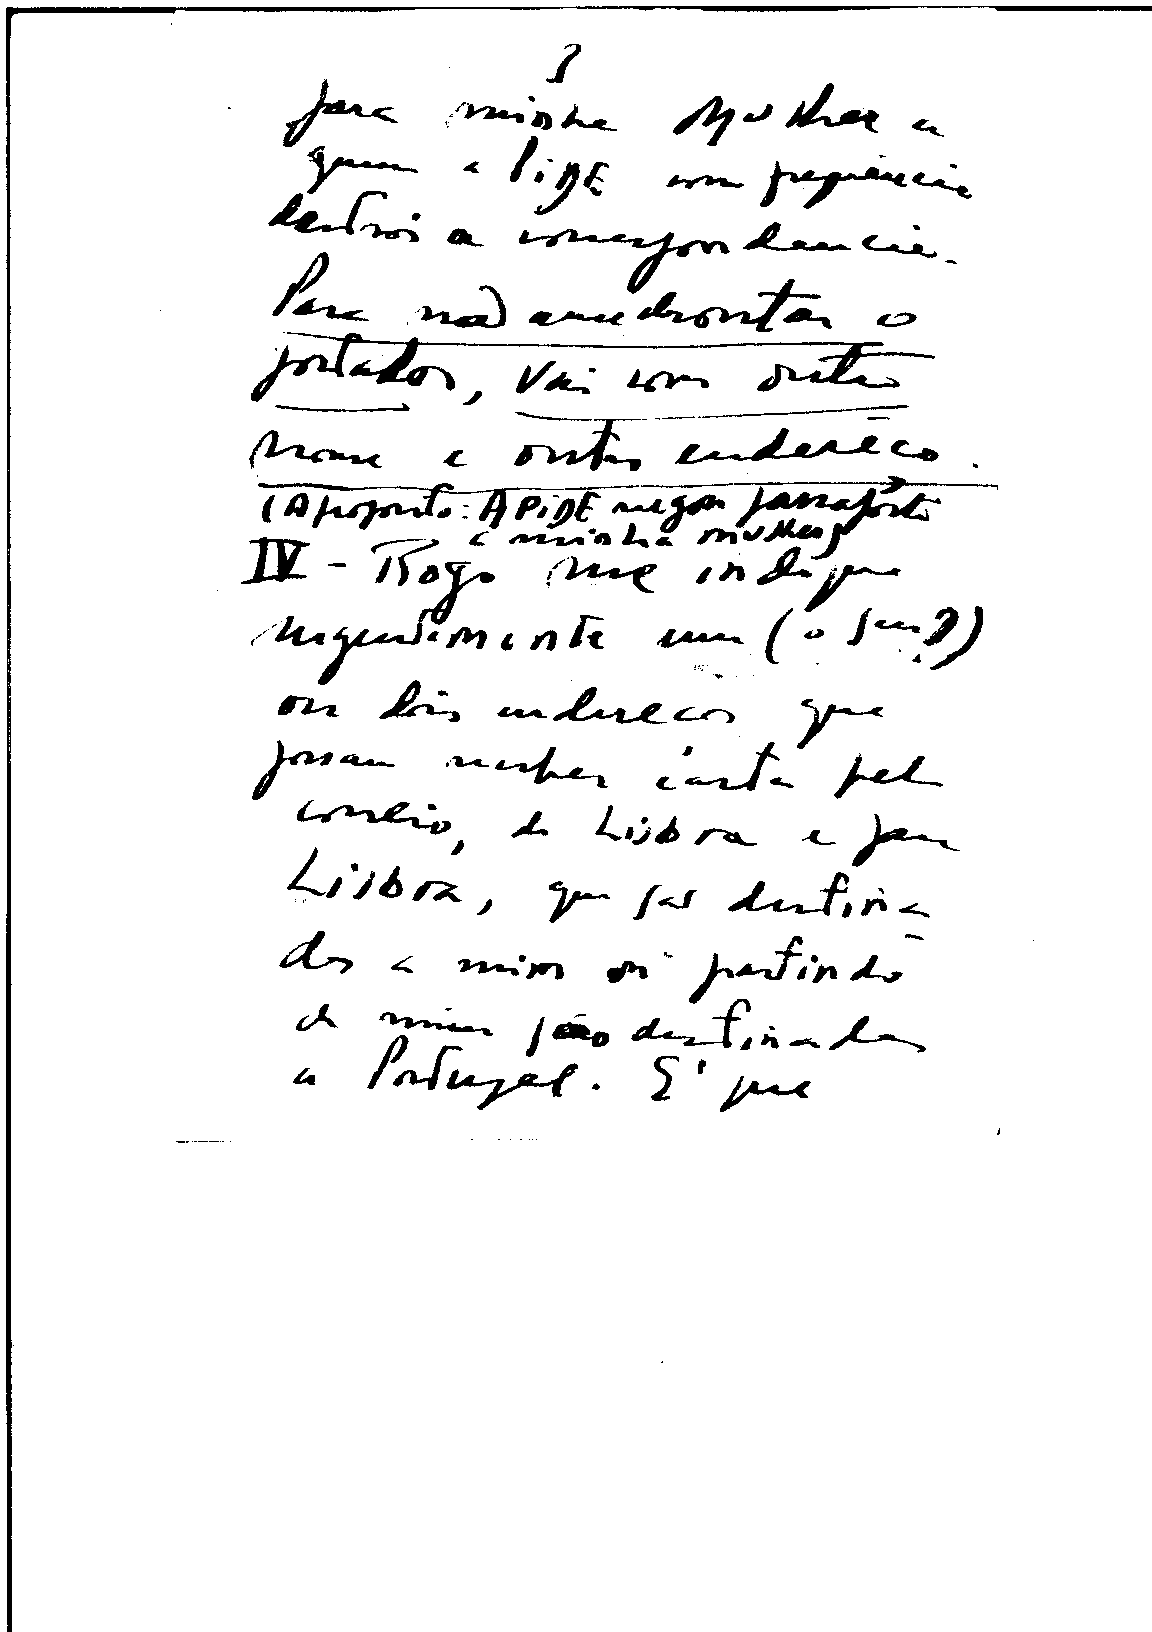 3
para minha Mulher a
quem a PIDE com frequência
destroi a correspondencia.
Para não amedrontar o
portador, vai com outro
nome e outro enderêço.
(A proposito: A PIDE negou passaporte
a minha mulher)
IV - Rogo me indique
urgentemente um (o seu?)
ou dois endereços que
possam receber carta pelo
correio, de Lisboa e para
Lisboa, que são destina
dos a mim ou partindo
de mim são destinadas
a Portugal. E' que